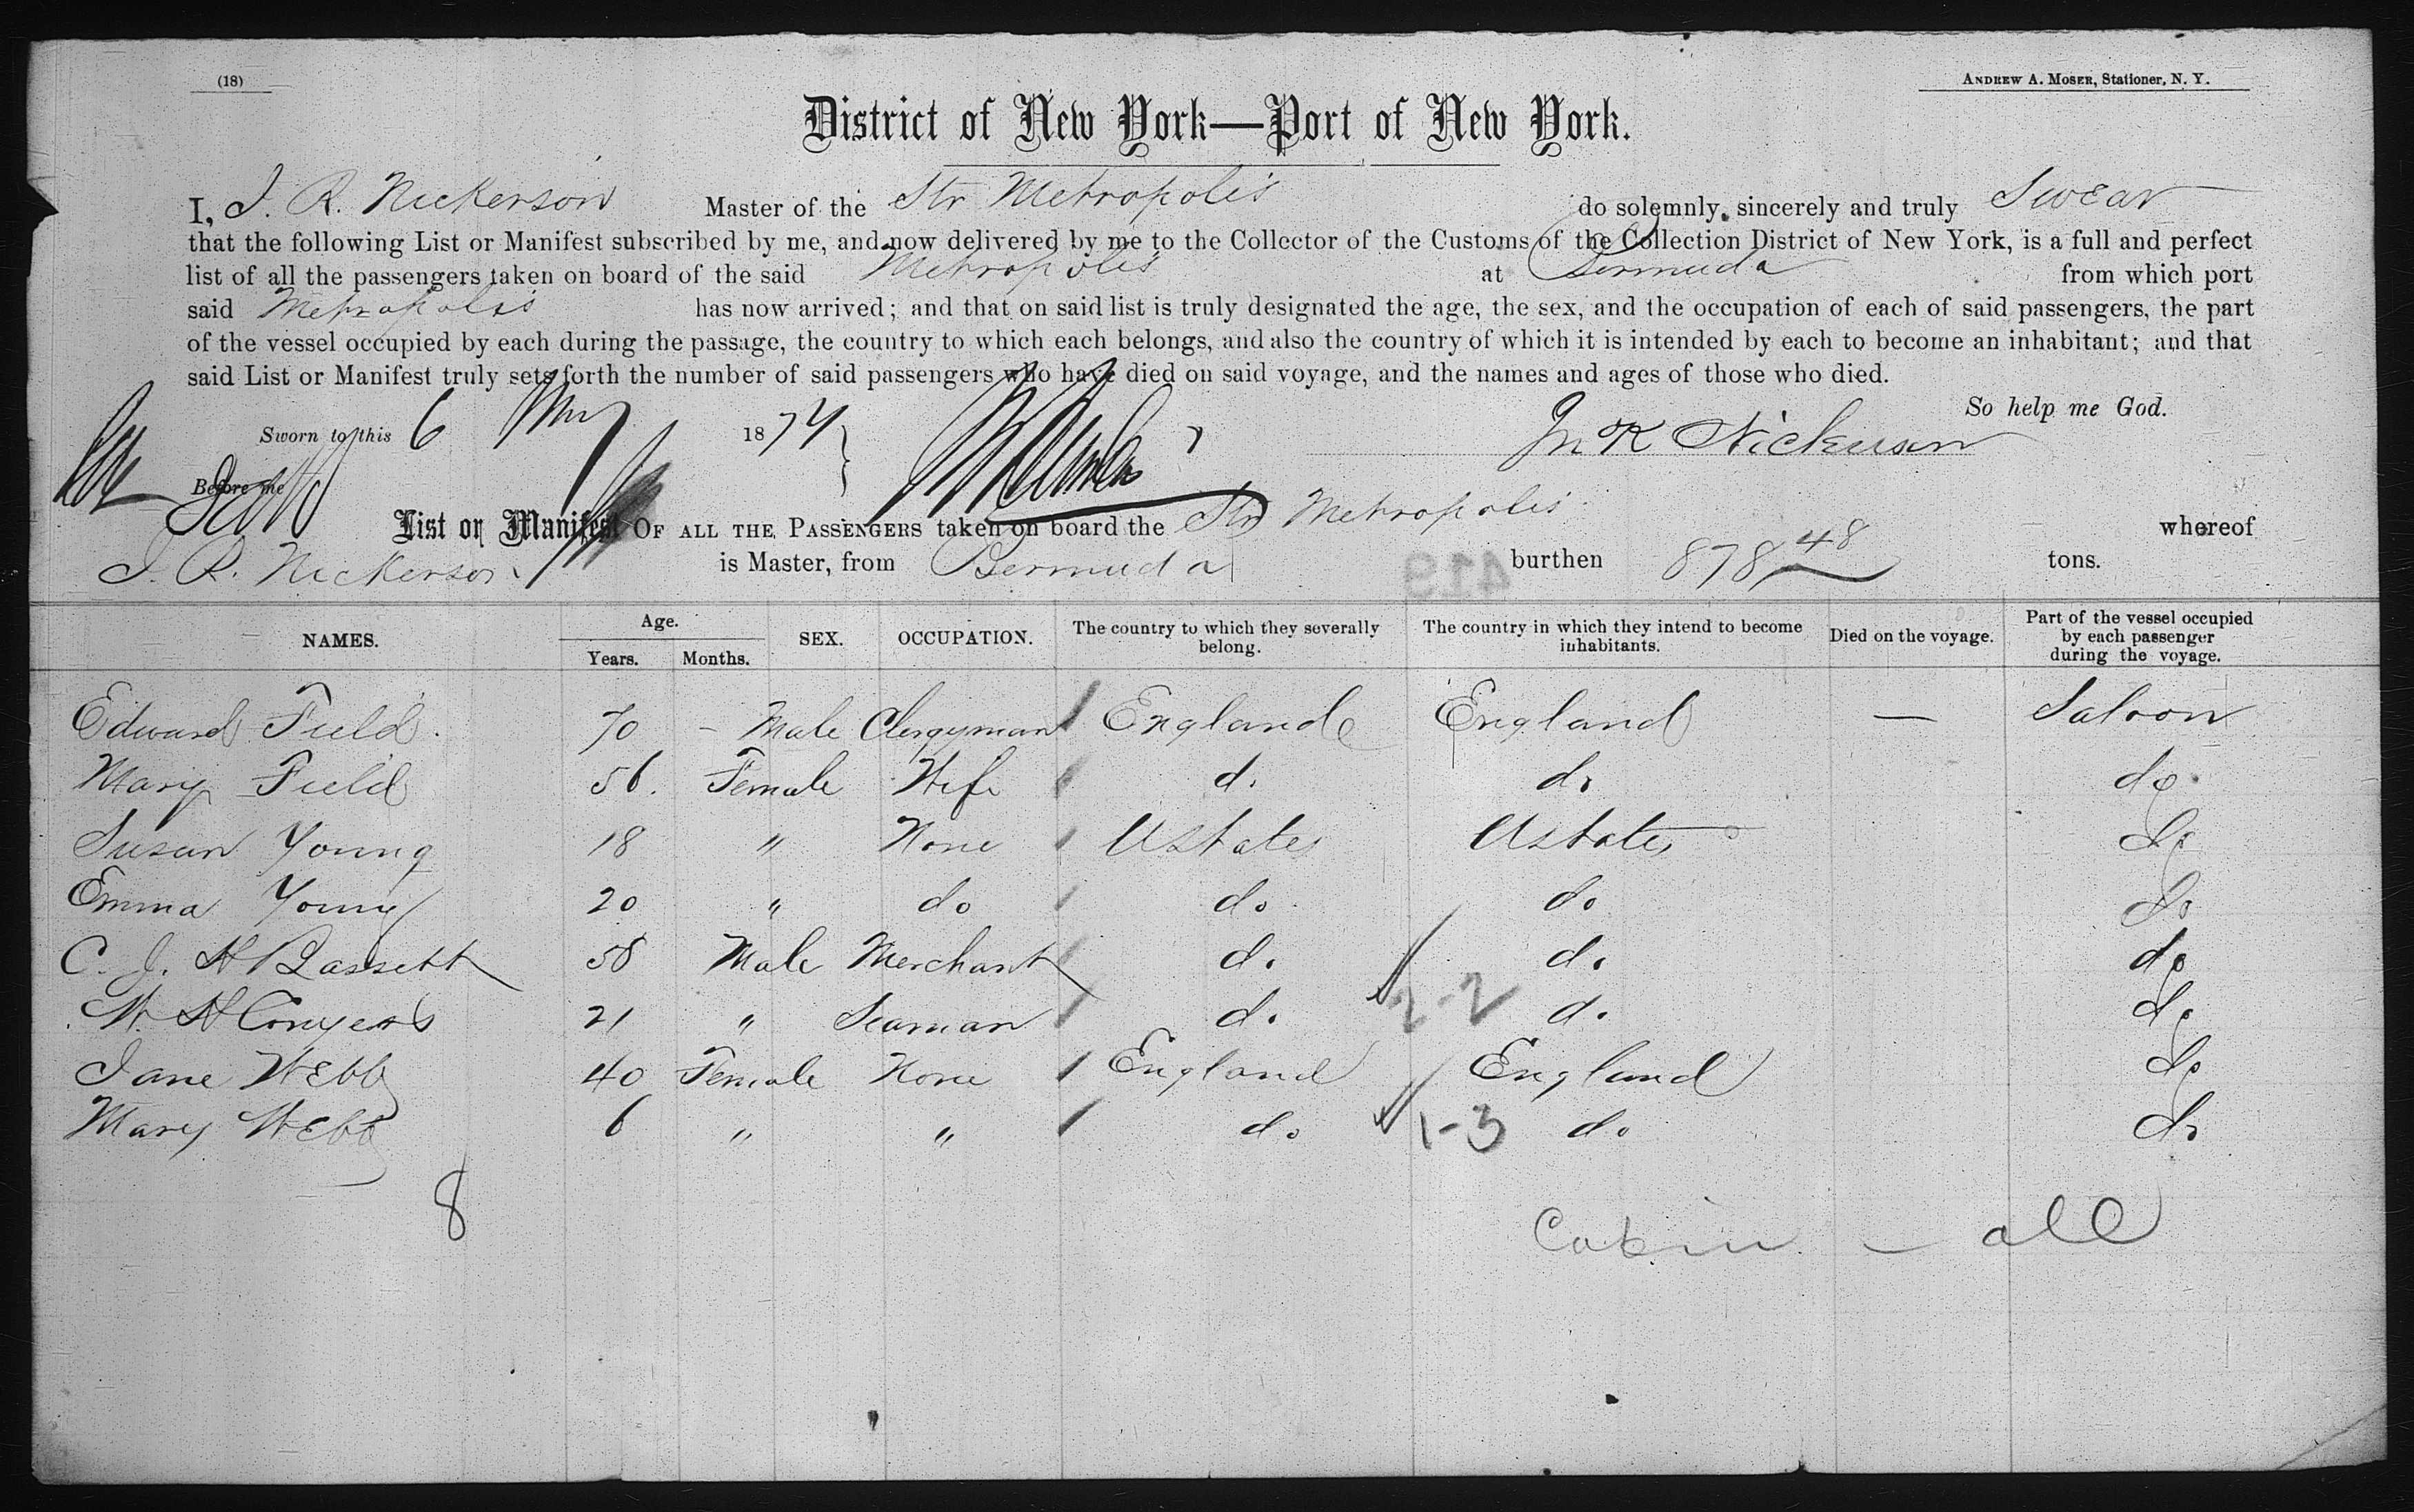 (18)
ANDREW A. MOSER, Stationer, N. Y.
District of New York—Port of New York.
I, J. R. Nickerson Master of the Str Metropolis do solemnly, sincerely and truly Swear
that the following List or Manifest subscribed by me, and now delivered by me to the Collector of the Customs of the Collection District of New York, is a full and perfect
list of all the passengers taken on board of the said Metropolis at Bermuda from which port
said Metropolis has now arrived; and that on said list is truly designated the age, the sex, and the occupation of each of said passengers, the part
of the vessel occupied by each during the passage, the country to which each belongs, and also the country of which it is intended by each to become an inhabitant; and that
said List or Manifest truly sets forth the number of said passengers who have died on said voyage, and the names and ages of those who died.
So help me God.
Sworn to this 6 May 1874
Nickerson
Before me
List or Manifest OF ALL THE PASSENGERS taken on board the Str Metropolis whereof
J. R. Nickerson is Master, from Bermuda burthen 878 48 tons.
419
NAMES. Age. Years. Months. SEX. OCCUPATION. The country to which they severally belong. The country in which they intend to become inhabitants. Died on the voyage. Part of the vessel occupied by each passenger during the voyage.
Edward Field. 70 - Male Clergyman England England — Saloon
Mary Field 56. Female Wife do do do.
Susan Young 18 " None UStates UStates do
Emma Young 20 " do do do do
C. J. H Bassett 58 Male Merchant do do do
W. H Conyers 21 " Seaman do 2-2 do do
Jane Webb 40 Female None England England do
Mary Webb 6 " " do 1-3 do do
8
Cabin — all